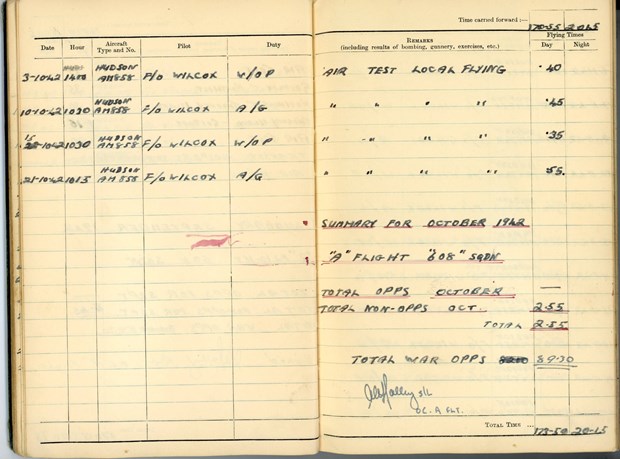 Time carried forward :— 170-55 20.15
Date Hour Aircraft Type and No. Pilot Duty REMARKS (including results of bombing, gunnery, exercises, etc.) Flying Times Day Night
3-10-42 1400 HUDSON AM858 F/O WILCOX W/OP AIR TEST LOCAL FLYING .40
10-10-42 1030 HUDSON AM858 F/O WILCOX A/G " " " " .45
15-10-42 1030 HUDSON AM858 F/O WILCOX W/OP " -"- " " .35
21-10-42 1015 HUDSON AM858 F/O WILCOX A/G " " " " .55.
SUMMARY FOR OCTOBER 1942
"A" FLIGHT "608" SQDN
TOTAL OPPS OCTOBER —
TOTAL NON-OPPS OCT. 2.55
TOTAL 2.55
TOTAL WAR OPPS 89.30
S/L
OC. A FLT.
TOTAL TIME ... 173-50 20-15